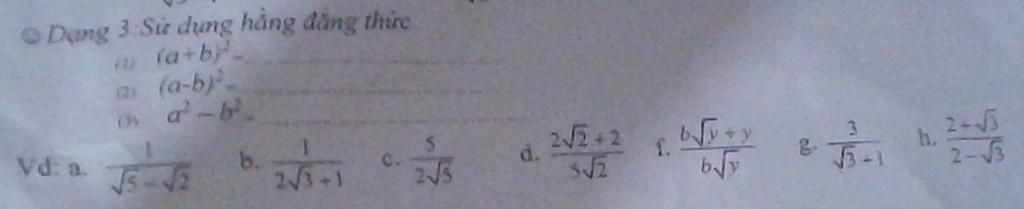 ☺ Dạng 3: Sử dụng hằng đẳng thức
(1) (a+b)² = ....................
(2) (a-b)² = ....................
(3) a² − b² = ....................
Vd: a. 1/(√5 − √2) b. 1/(2√3 + 1) c. 5/(2√5) d. (2√2 + 2)/(5√2) f. (b√y + y)/(b√y) g. 3/(√3 + 1) h. (2 + √3)/(2 − √3)